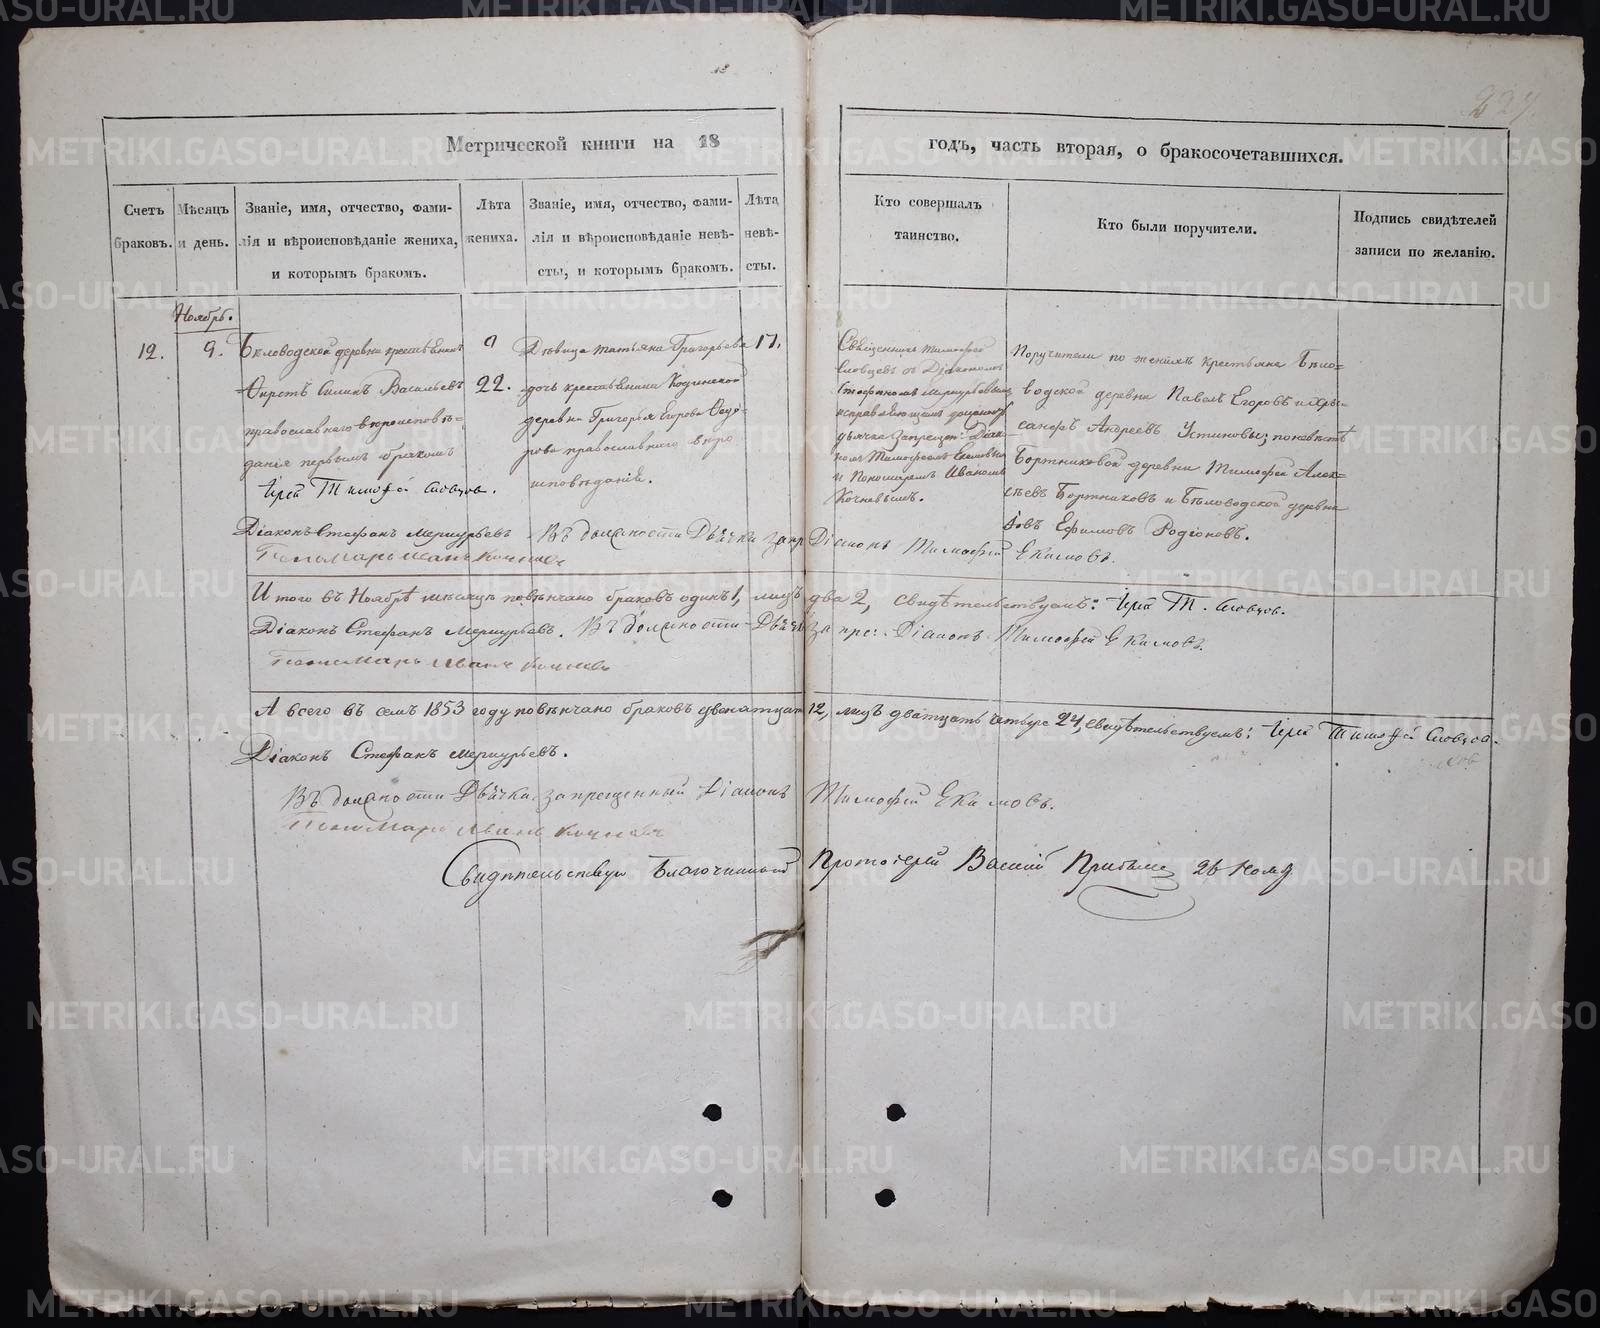 227.
Метрической книги на 18
годъ, часть вторая, о бракосочетавшихся.
Счетъ браковъ.
Мѣсяцъ и день.
Званіе, имя, отчество, фами-
лія и вѣроисповѣданіе жениха,
и которымъ бракомъ.
Лѣта
жениха.
Званіе, имя, отчество, фами-
лія и вѣроисповѣданіе невѣ-
сты, и которымъ бракомъ.
Лѣта
невѣ-
сты.
Кто совершалъ
таинство.
Кто были поручители.
Подпись свидѣтелей
записи по желанію.
Ноябрь.
12.
9.
Бѣловодской деревни крестьянинъ
Силинъ Васильевъ
православнаго вѣроисповѣ-
данія первымъ бракомъ
22.
Дѣвица Татьяна Григорьева
дочь крестьянина Кодинской
деревни Григорья Егорова Ѳедо-
рова православнаго вѣро
исповѣданія.
17.
Священникъ Тимофей
Словцовъ съ Діакономъ
Стефаномъ Меркурьевымъ
исправляющимъ должность
дьячка запрещен: Діако-
номъ Тимофеемъ Екимовымъ
и Пономаремъ Иваномъ
Кочневымъ.
Поручители по женихѣ крестьяне Бѣло-
водской деревни Павелъ Егоровъ и Хры-
санфъ Андреевъ Устиновы; по невѣстѣ
Бортниковой деревни Тимофей Алек-
сѣевъ Бортниковъ и Бѣловодской деревни
Іовъ Ефимовъ Родіоновъ.
Іерей Тимофей Словцов.
Діаконъ Стефанъ Меркурьевъ В должности Дьячка запр Діаконъ Тимофей Екимовъ.
Пономарь Иванъ Кочневъ
Итого въ Ноябрѣ мѣсяцѣ повѣнчано браковъ одинъ 1, лицъ два 2, свидѣтельствуемъ: Іерей Т. Словцов.
Діаконъ Стефанъ Меркурьевъ. Въ должности Дьяч запрещ. Діаконъ Тимофей Екимовъ.
Пономарь Иванъ Кочневъ
А всего въ семъ 1853 году повѣнчано браковъ двенатцать 12, лицъ дватцать четыре 24, свидѣтельствуемъ: Іерей Тимофей Словцов.
Діаконъ Стефанъ Меркурьевъ.
Въ должности Дьячка запрещенный Діаконъ Тимофей Екимовъ.
Пономарь Иванъ Кочневъ
Свидѣтельствую Благочинный Протоіерей Василій
METRIKI.GASO-URAL.RU